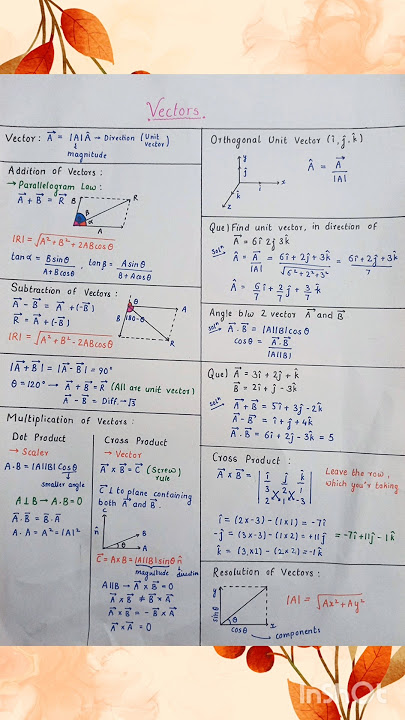 Vectors.
Vector: A = |A|Â → Direction (Unit vector)
↓
magnitude
Addition of Vectors:
→ Parallelogram Law:
A + B = R
B R
B
β
α
A
|R| = √A² + B² + 2ABcosθ
tanα = Bsinθ / A+Bcosθ , tanβ = Asinθ / B+Acosθ
Subtraction of Vectors:
A - B = A + (-B)
R = A + (-B)
|R| = √A² + B² - 2ABcosθ
θ
A
B 180-θ
R
|A + B| = |A - B| = 90°
θ = 120° → A + B = R (All are unit vector)
A - B = Diff. → √3
Multiplication of Vectors:
Dot Product
→ Scaler
A.B = |A||B|cosθ
↓
smaller angle
A⊥B → A.B = 0
A.B = B.A
A.A = A² = |A|²
Cross Product
→ Vector
A x B = C (Screw) rule
C ⊥ to plane containing
both A and B.
C
n̂
B
θ
A
C = AxB = |A||B|sinθ n̂
magnitude direction
A||B → A x B = 0
A x B ≠ B x A
A x B = - B x A
A x A = 0
Orthogonal Unit Vector (î, ĵ, k̂)
y
j
x
i
k
z
Â = A / |A|
Que) Find unit vector, in direction of
A = 6î 2ĵ 3k̂
Solⁿ Â = A / |A| = 6î + 2ĵ + 3k̂ / √6²+2²+3² = 6î + 2ĵ + 3k̂ / 7
Â = 6/7 î + 2/7 ĵ + 3/7 k̂
Angle b/w 2 vector A and B
Solⁿ A.B = |A||B|cosθ
cosθ = A.B / |A||B|
Que) A = 3î + 2ĵ + k̂
B = 2î + ĵ - 3k̂
Solⁿ A + B = 5î + 3ĵ - 2k̂
A - B = î + ĵ + 4k̂
A.B = 6î + 2ĵ - 3k̂ = 5
Cross Product:
A x B = | î ĵ k̂ |
3 2 1
2 1 -3
Leave the row,
which you'r taking
î = (2x-3) - (1x1) = -7î
-ĵ = (3x-3) - (2x1) = +11ĵ = -7î+11ĵ-1k̂
k̂ = (3x1) - (2x2) = -1k̂
Resolution of Vectors:
y
sinθ
θ
x
cosθ
components
|A| = √Ax² + Ay²
InShot